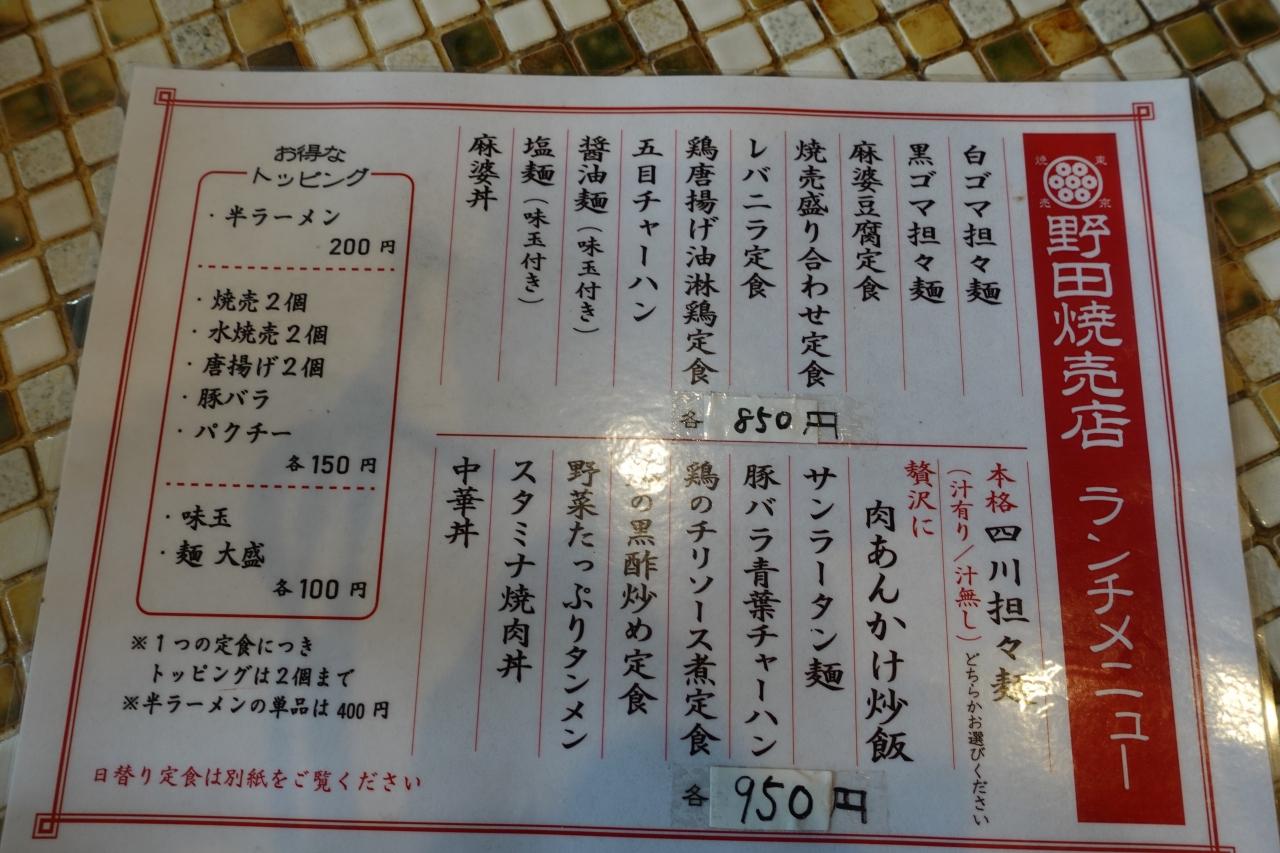 東京焼売
野田焼売店 ランチメニュー
白ゴマ担々麺
黒ゴマ担々麺
麻婆豆腐定食
焼売盛り合わせ定食
レバニラ定食
鶏唐揚げ油淋鶏定食
五目チャーハン
醤油麺（味玉付き）
塩麺（味玉付き）
麻婆丼
各 850円
本格四川担々麺
（汁有り／汁無し）どちらかお選びください
贅沢に
肉あんかけ炒飯
サンラータン麺
豚バラ青葉チャーハン
鶏のチリソース煮定食
の黒酢炒め定食
野菜たっぷりタンメン
スタミナ焼肉丼
中華丼
各 950円
お得な
トッピング
・半ラーメン
200円
・焼売2個
・水焼売2個
・唐揚げ2個
・豚バラ
・パクチー
各150円
・味玉
・麺 大盛
各100円
※1つの定食につき
トッピングは2個まで
※半ラーメンの単品は400円
日替り定食は別紙をご覧ください